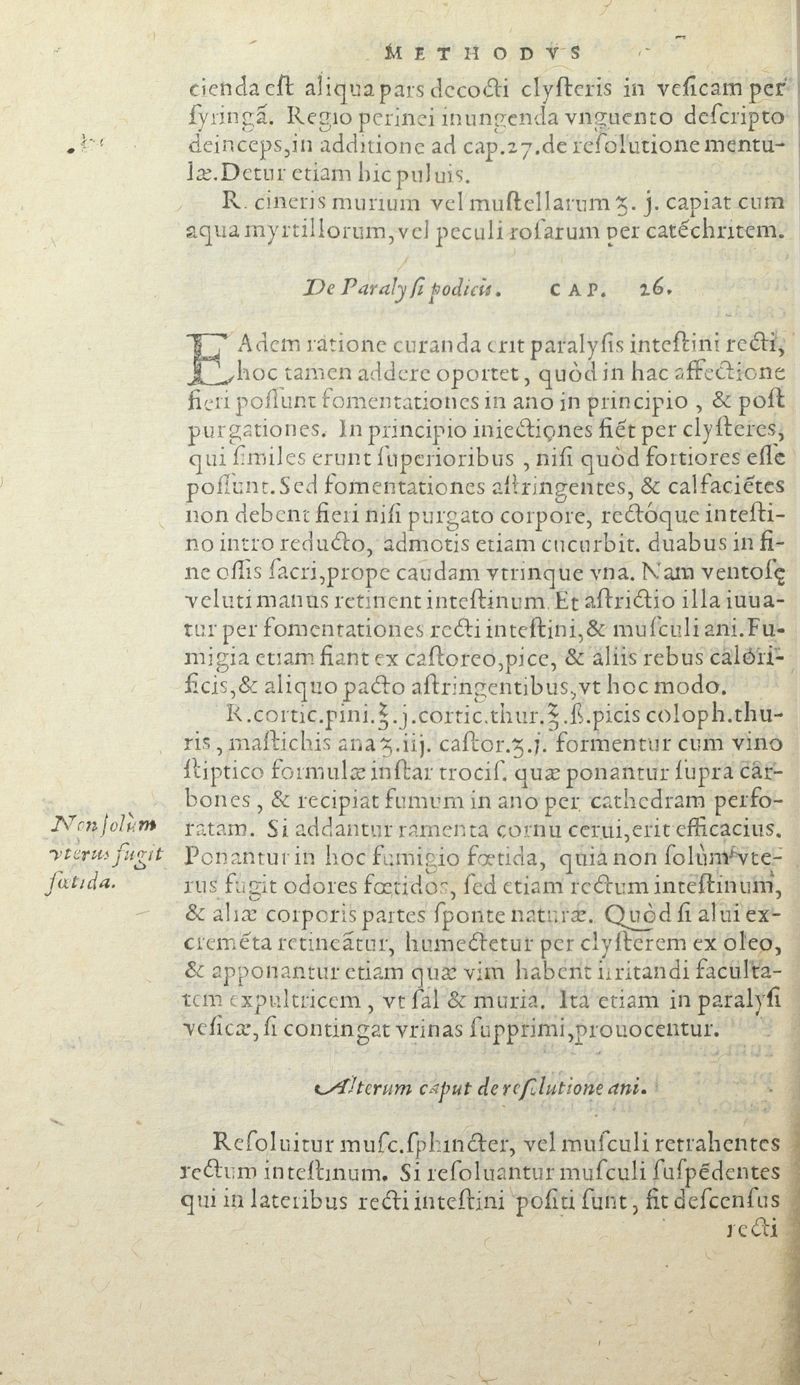 METHODVS
cienda est aliqua pars decocti clysteris in vesicam per
syringã. Regio perinei inungenda vnguento descripto
deinceps,in additione ad cap.27.de resolutione mentu-
læ.Detur etiam hic puluis.
R. cineris murium vel mustellarum ʒ. j. capiat cum
aqua myrtillorum,vel peculi rosarum per catẽchritem.
De Paralysi podicis. CAP. 26.
EAdem ratione curanda erit paralysis intestini recti,
hoc tamen addere oportet, quòd in hac affectione
fieri possunt fomentationes in ano in principio , & post
purgationes. In principio iniectiones fiẽt per clysteres,
qui similes erunt superioribus , nisi quòd fortiores esse
possunt.Sed fomentationes astringentes, & calfaciẽtes
non debent fieri nisi purgato corpore, rectóque intesti-
no intro reducto, admotis etiam cucurbit. duabus in fi-
ne ossis sacri,prope caudam vtrinque vna. Nam ventosę
veluti manus retinent intestinum. Et astrictio illa iuua-
tur per fomentationes recti intestini,& musculi ani.Fu-
migia etiam fiant ex castoreo,pice, & aliis rebus calori-
ficis,& aliquo pacto astringentibus,vt hoc modo.
R.cortic.pini.℥.j.cortic.thur.℥.ß.picis coloph.thu-
ris, mastichis ana ʒ.iij. castor.ʒ.j. formentur cum vino
stiptico formulæ instar trocis. quæ ponantur supra car-
bones , & recipiat fumum in ano per cathedram perfo-
ratam. Si addantur ramenta cornu cerui,erit efficacius.
Ponantur in hoc fumigio fœtida, quia non solùm vte-
rus fugit odores fœtidos, sed etiam rectum intestinum,
& aliæ corporis partes sponte naturæ. Quòd si alui ex-
cremẽta retineãtur, humectetur per clysterem ex oleo,
& apponantur etiam quæ vim habent irritandi faculta-
tem expultricem , vt sal & muria. Ita etiam in paralysi
vesicæ, si contingat vrinas supprimi,prouocentur.
Non solum
vterus fugit
fœtida.
Alterum caput de resolutione ani.
Resoluitur musc.sphincter, vel musculi retrahentes
rectum intestinum. Si resoluantur musculi suspẽdentes
qui in lateribus recti intestini positi sunt, fit descensus
recti